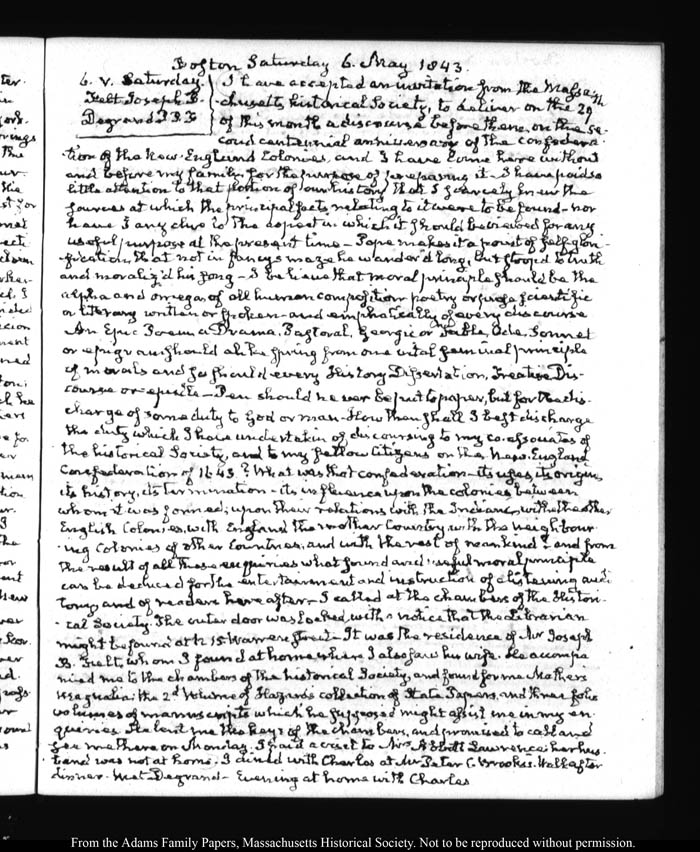 Boston Saturday 6. May 1843.
6. V. Saturday.
Felt Joseph B.
Degrand P. P. F
I have accepted an invitation from the Massa-
-chusetts historical Society, to deliver on the 29th
of this month a discourse before them, on the se-
cond centennial anniversary of the confedera-
tion of the New-England Colonies, and I have come here without
and before my family, for the purpose of preparing it. I have paid so
little attention to that portion of our history that I scarcely knew the
sources at which the principal facts relating to it were to be found - nor
have I any clue to the aspect in which it should be viewed for any
useful purpose at the present time - Pope makes it a point of self glori-
-fication, that not in fancy's maze he wander'd long, but stooped to truth
and moraliz'd his song - I believe that moral principle should be the
alpha and omega of all human composition poetry or prose scientific
or literary written or spoken - and emphatically of every discourse
An Epic Poem a Drama, Pastoral, Georgic or Fable, Ode, Sonnet
or epigram should alike spring from one vital seminal principle
of morals and so should every History Dissertation, Treatise Dis-
course or epistle - Pen should never be put to paper, but for the dis-
charge of some duty to God or man - How then shall I best discharge
the duty which I have undertaken of discoursing to my co-associates of
the historical Society, and to my fellow Citizens on the New-England
Confederation of 1643? What was that confederation - its uses, its origin,
its history, its termination - its influence upon the colonies between
whom it was formed; upon their relations with the Indians, with the other
English Colonies, with England the mother Country, with the neighbour
-ing Colonies of other Countries, and with the rest of mankind? and from
the result of all these enquiries what sound and useful moral principle
can be deduced for the entertainment and instruction of a listening audi
tory, and of readers hereafter - I called at the chambers of the Histori-
-cal Society. The outer door was locked, with a notice that the Librarian
might be found at No 15 Warren street - It was the residence of Mr Joseph
B. Felt, whom I found at home where I also saw his wife. He accompa
nied me to the chambers of the historical Society, and found for me Mathers
Magnalia; the 2d Volume of Hazard's collection of State Papers, and three folio
volumes of manuscripts which he supposed might assist me in my en-
quiries. He lent me the keys of the chambers, and promised to call and
see me there on Monday. I paid a visit to Mrs Abbott Lawrence her hus-
band was not at home. I dined with Charles at Mr Peter C. Brooks's. Walk after
dinner. Met Degrand - Evening at home with Charles
From the Adams Family Papers, Massachusetts Historical Society. Not to be reproduced without permission.